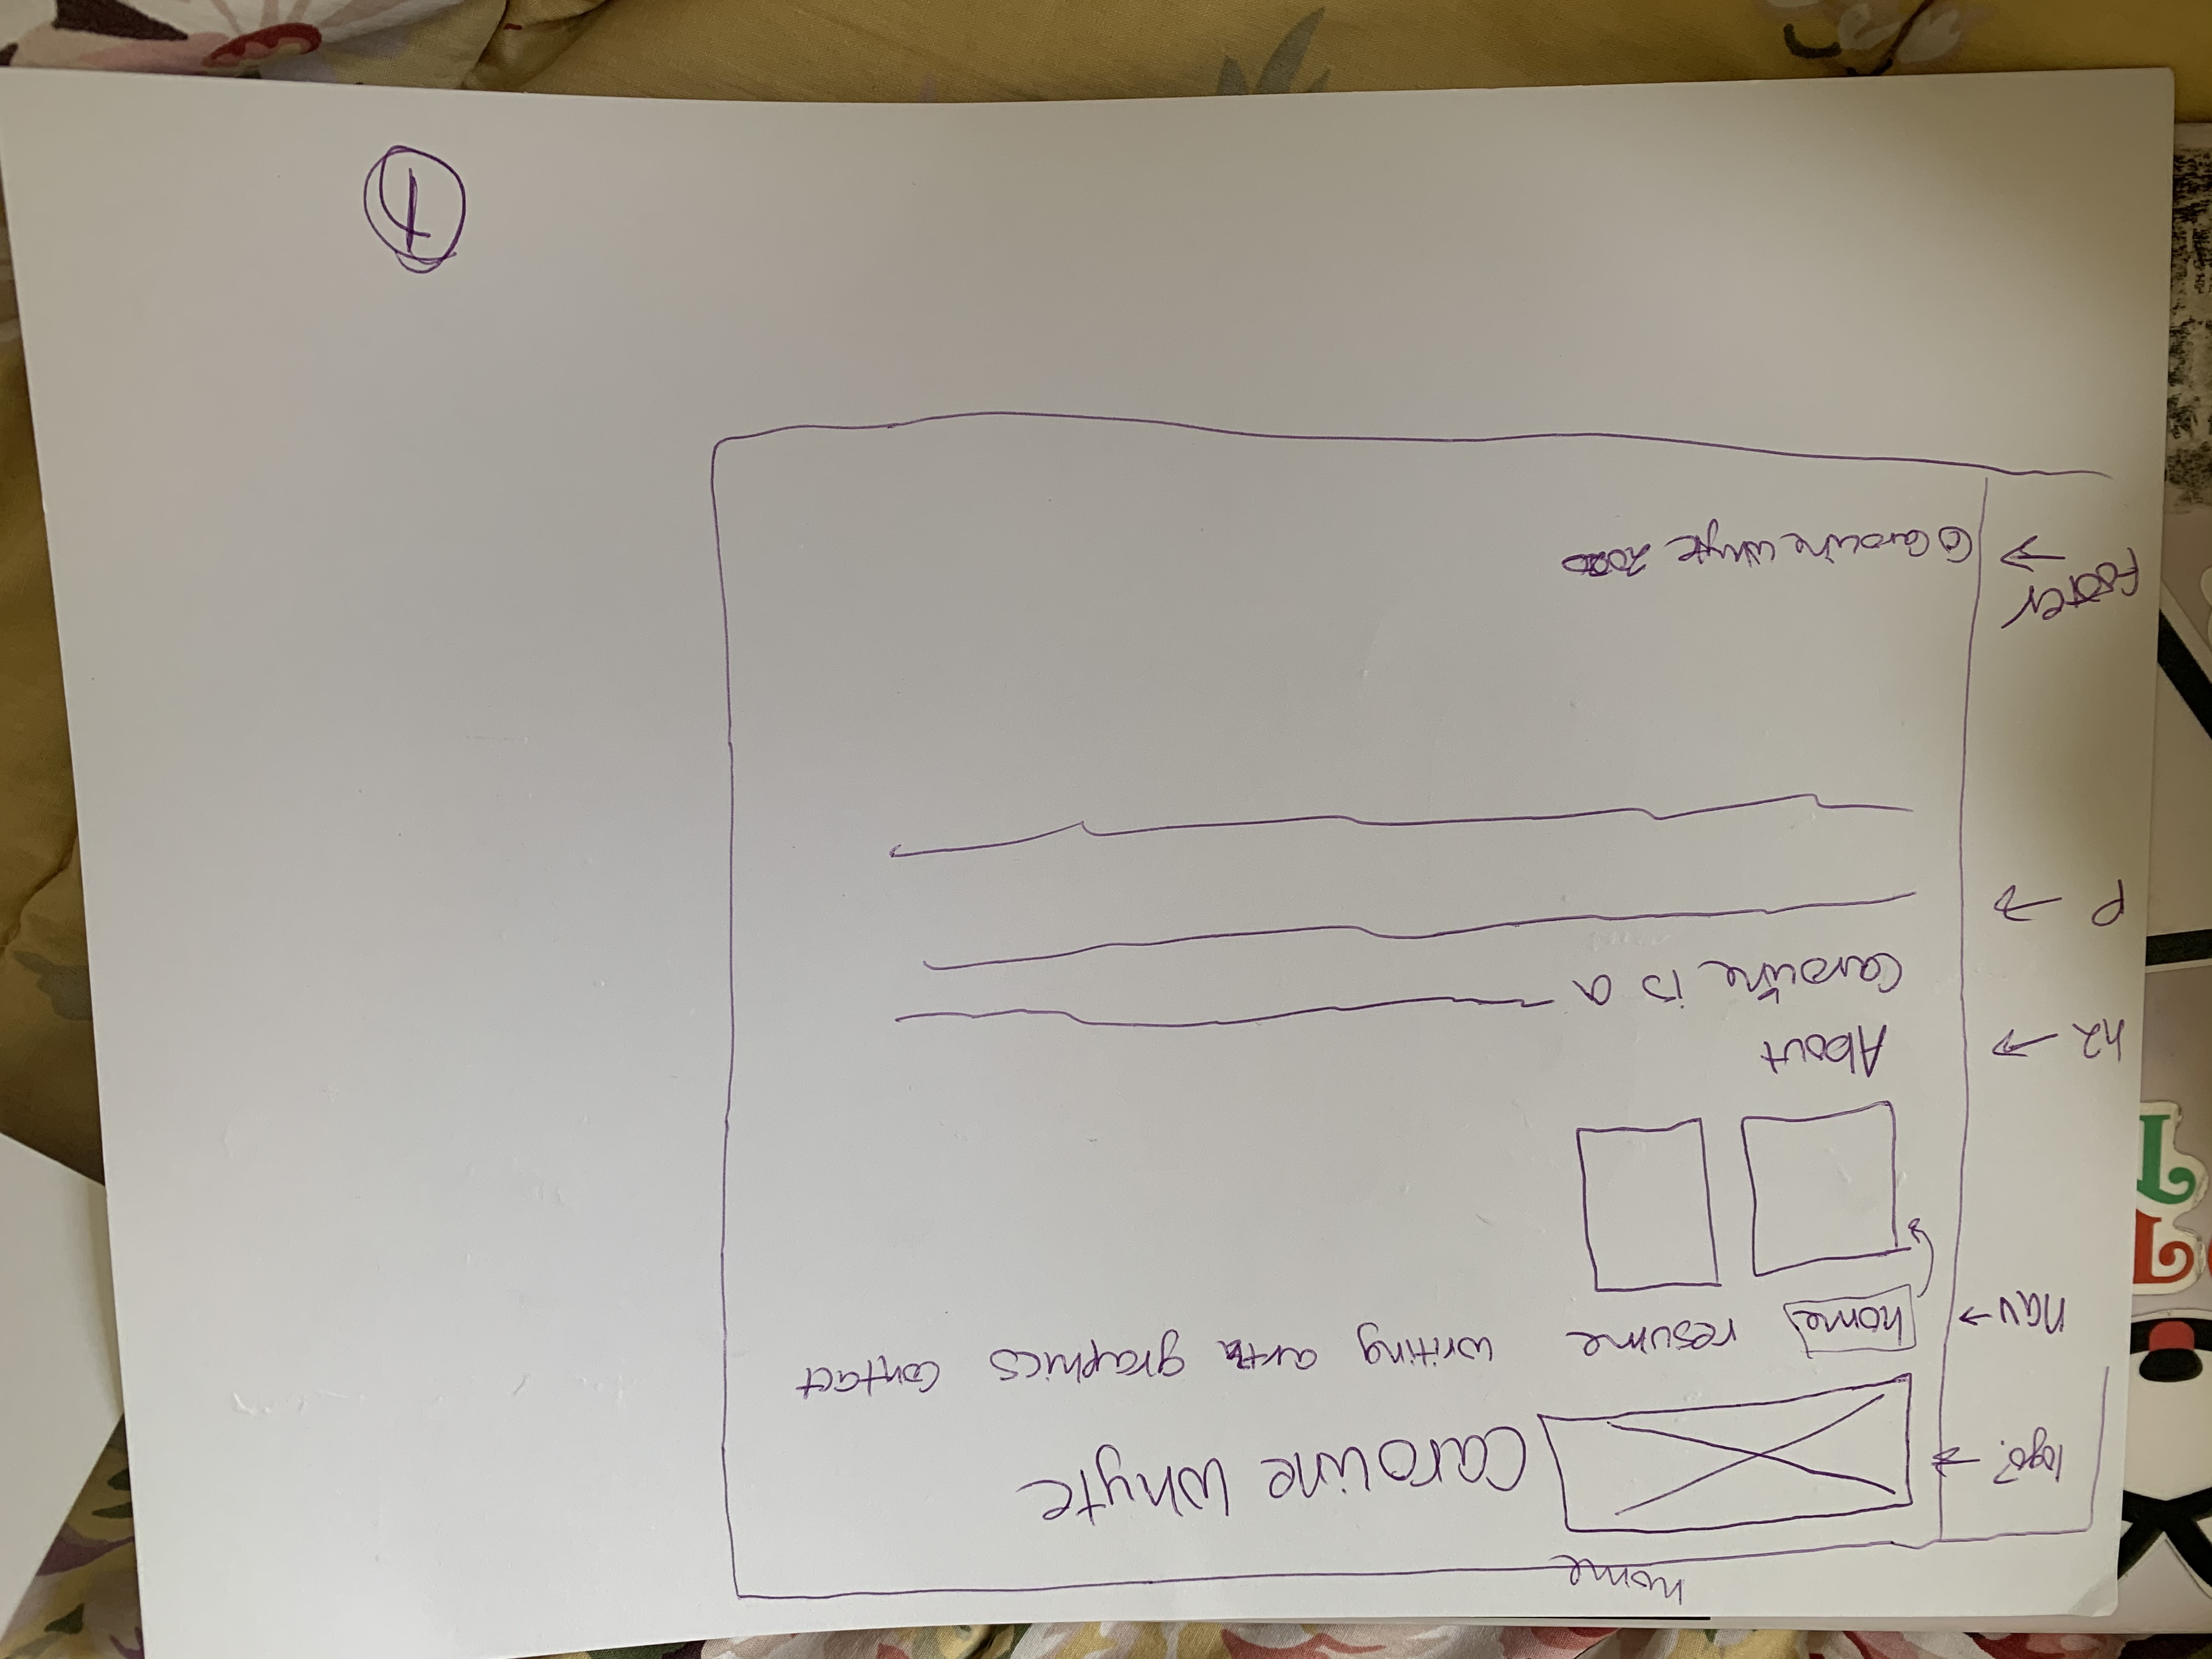 home
logo? → Caroline Whyte
nav → home resume writing art graphics contact
h2 → About
Caroline is a
p →
footer
→ © Caroline Whyte 2020
1